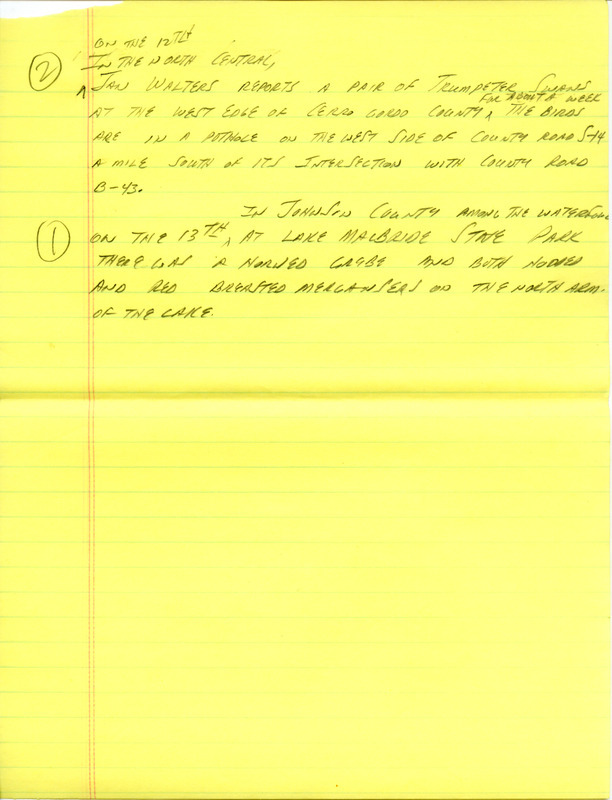 ON THE 12TH
② IN THE NORTH CENTRAL,
^ JAN WALTERS REPORTS A PAIR OF TRUMPETER SWANS
FOR ABOUT A WEEK
AT THE WEST EDGE OF CERRO GORDO COUNTY ^ THE BIRDS
ARE IN A POTHOLE ON THE WEST SIDE OF COUNTY ROAD S-14
A MILE SOUTH OF ITS INTERSECTION WITH COUNTY ROAD
B-43.
IN JOHNSON COUNTY AMONG THE WATERFOWL
① ON THE 13TH ^ AT LAKE MACBRIDE STATE PARK
THERE WAS A HORNED GREBE AND BOTH HOODED
AND RED BREASTED MERGANSERS ON THE NORTH ARM
OF THE LAKE.